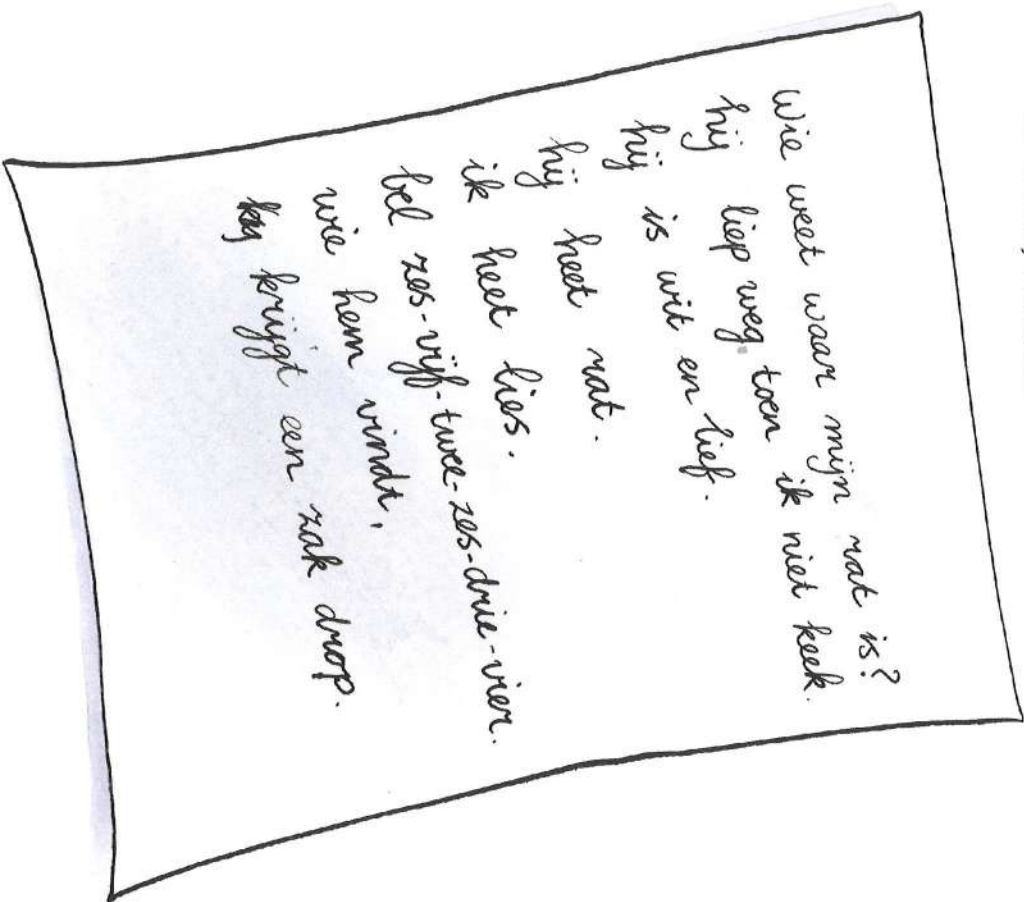 wie weet waar mijn rat is?
hij liep weg toen ik niet keek.
hij is wit en lief.
hij heet rat.
ik heet lies.
bel zes-vijf-twee-zes-drie-vier.
wie hem vindt,
krijgt een zak drop.